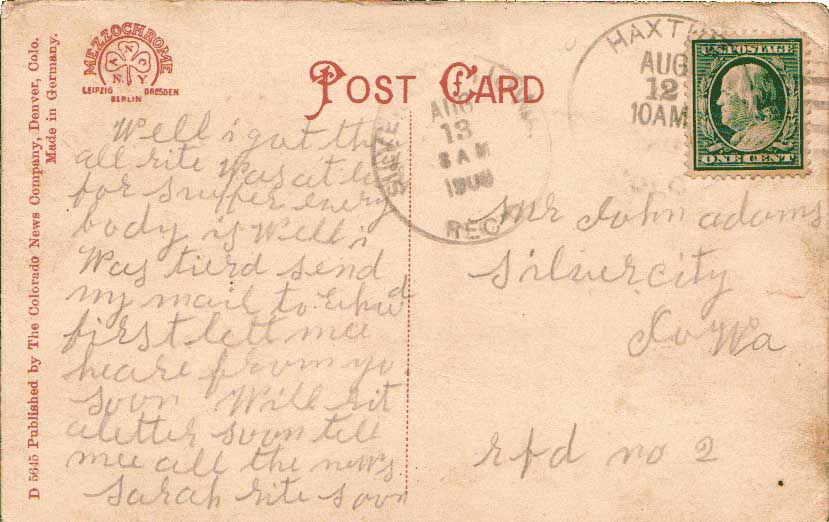 D 5645 Published by The Colorado News Company, Denver, Colo.
Made in Germany.
MEZZOCHROME
A N C
N Y
LEIPZIG DRESDEN
BERLIN
POST CARD
HAXTUN
AUG
12
10AM
AUG
13
8 AM
REC
U.S. POSTAGE
ONE CENT
Well i got the
all rite Was at
for supper every
body is Well i
Was tierd send
my mail to
first lett mee
heare from yo
soon Will rit
a letter soon tell
mee all the news
sarah rite soon
Mr John adams
Silver city
Iowa
rfd no 2